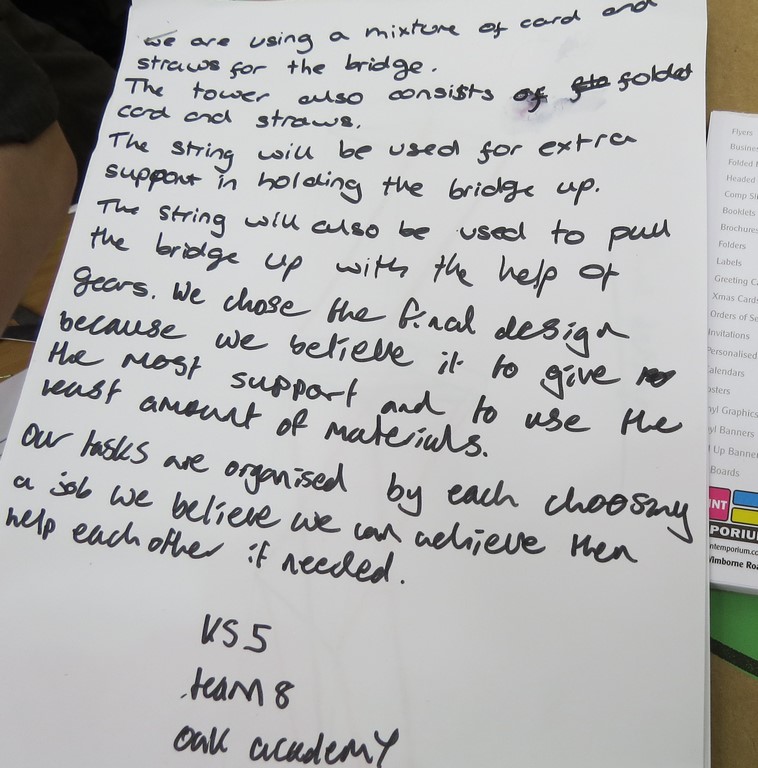 we are using a mixture of card and
straws for the bridge.
The tower also consists of folded
card and straws.
The string will be used for extra
support in holding the bridge up.
The string will also be used to pull
the bridge up with the help of
gears. We chose the final design
because we believe it to give
the most support and to use the
least amount of materials.
Our tasks are organised by each choosing
a job we believe we can achieve then
help each other if needed.
KS5
team 8
oak academy
Flyers
Folded
Headed
Comp
Booklets
Brochures
Folders
Labels
Greeting
Xmas Cards
Orders of
nvitations
Personalised
alendars
osters
yl Graphics
yl Banners
Up Banner
Boards
INT
PORIU
ntemporium.co
Wimborne Roa